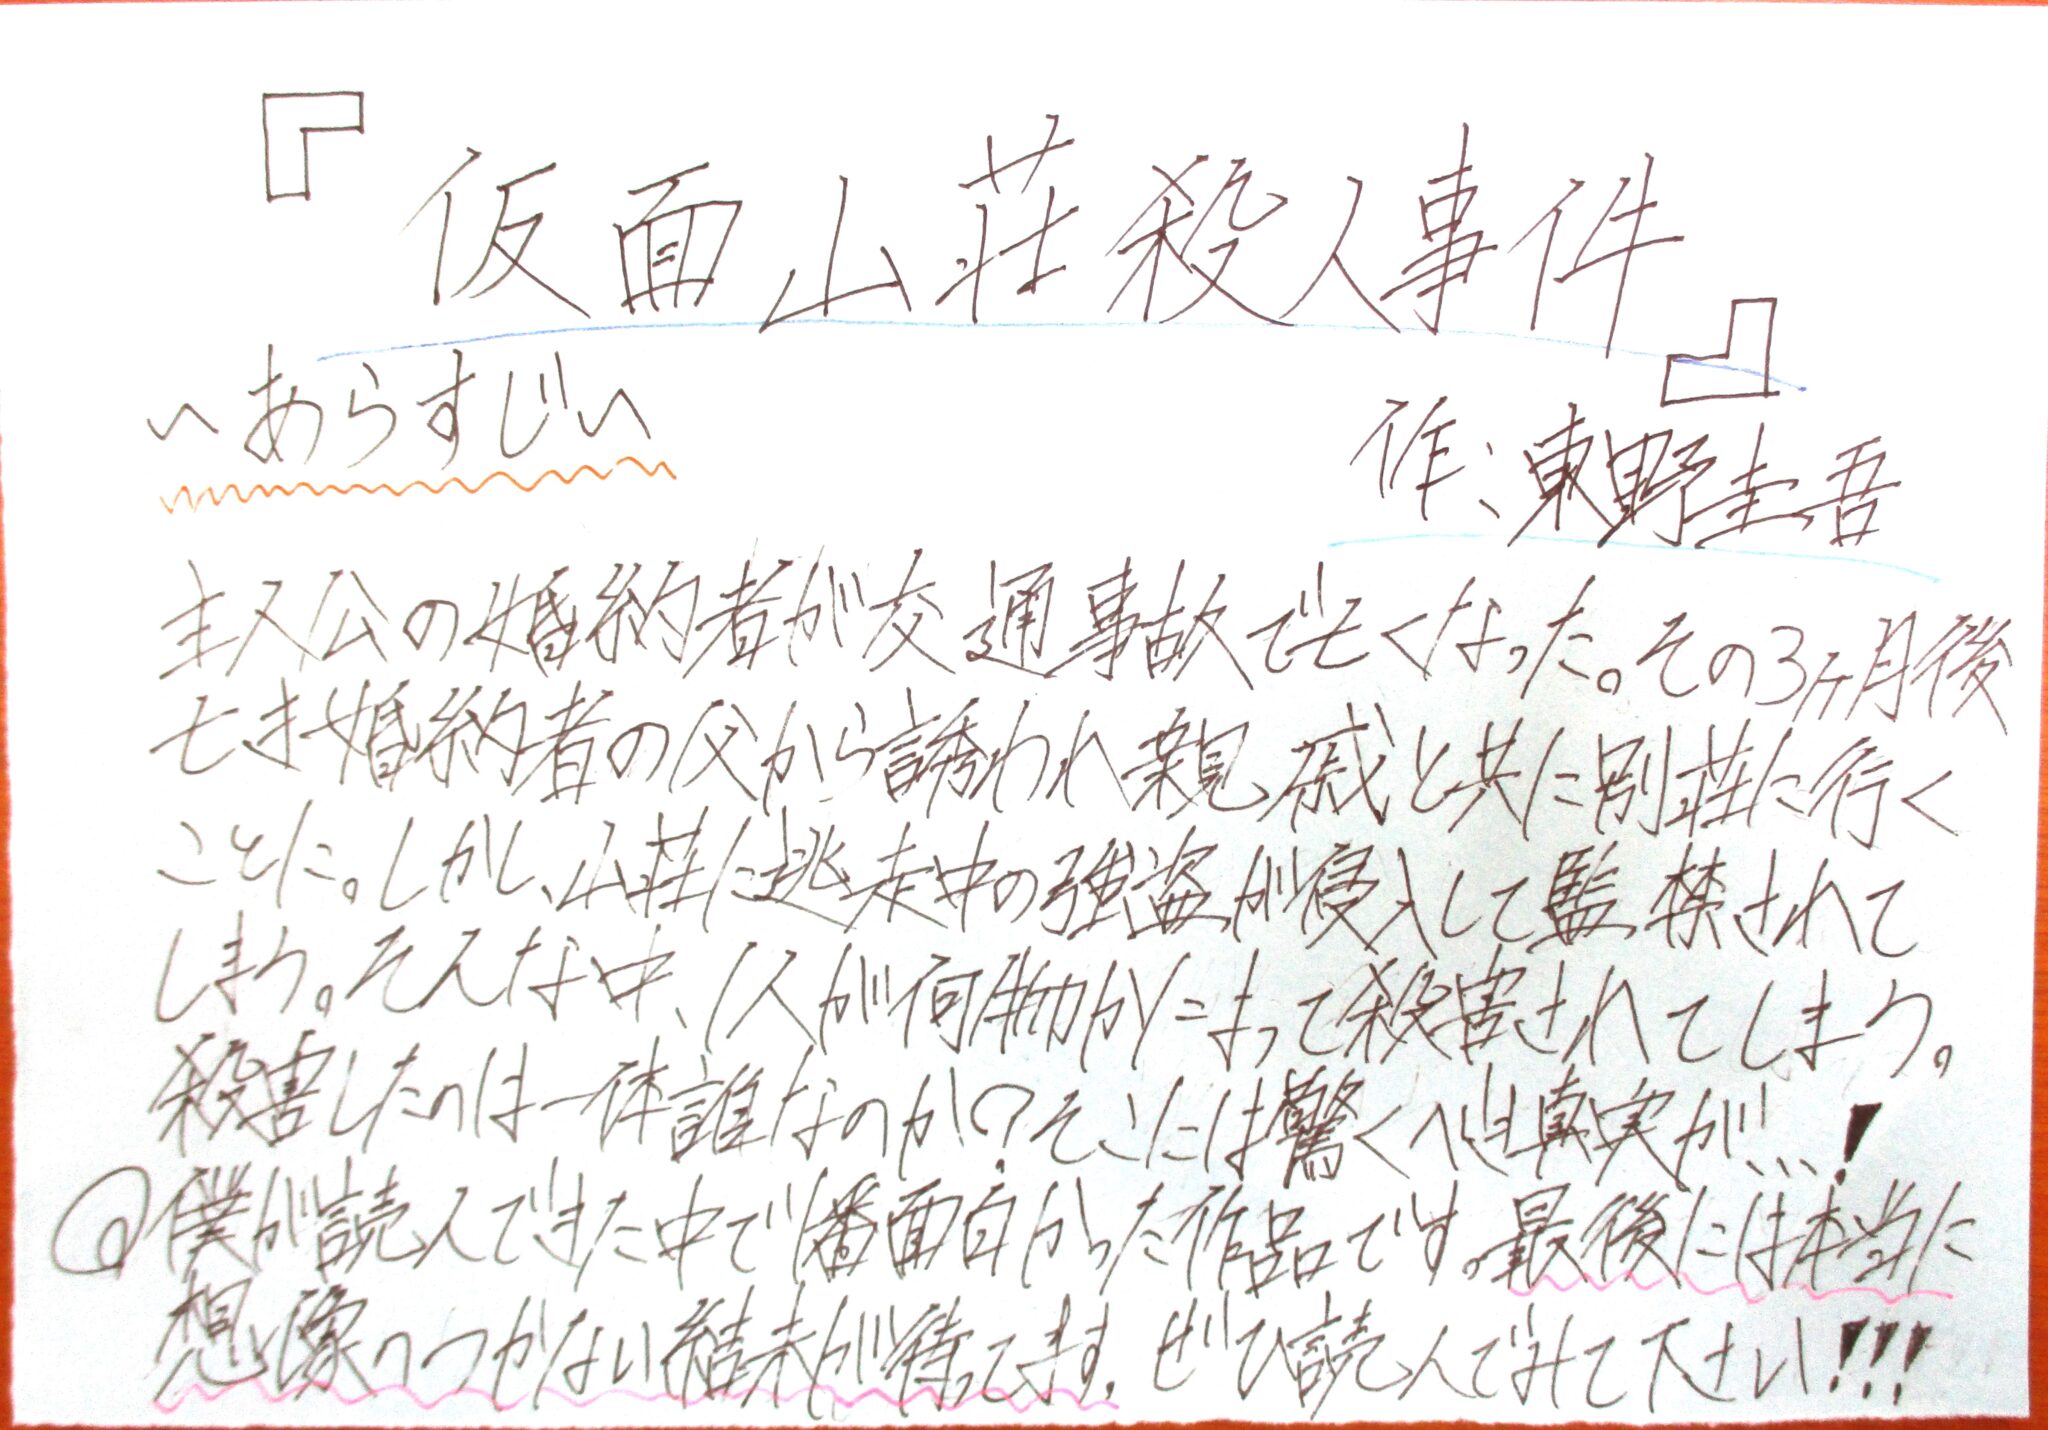 『仮面山荘殺人事件』
〜あらすじ〜
作:東野圭吾
主人公の婚約者が交通事故で亡くなった。その3ヶ月後
亡き婚約者の父から誘われ親戚と共に別荘に行く
ことに。しかし、山荘に逃走中の強盗が侵入して監禁されて
しまう。そんな中、1人が何物かによって殺害されてしまう。
殺害したのは一体誰なのか?そこには驚くべき真実が...!
僕が読んできた中で1番面白かった作品です。最後には本当に
想像のつかない結末が待ってます。ぜひ読んでみて下さい!!!